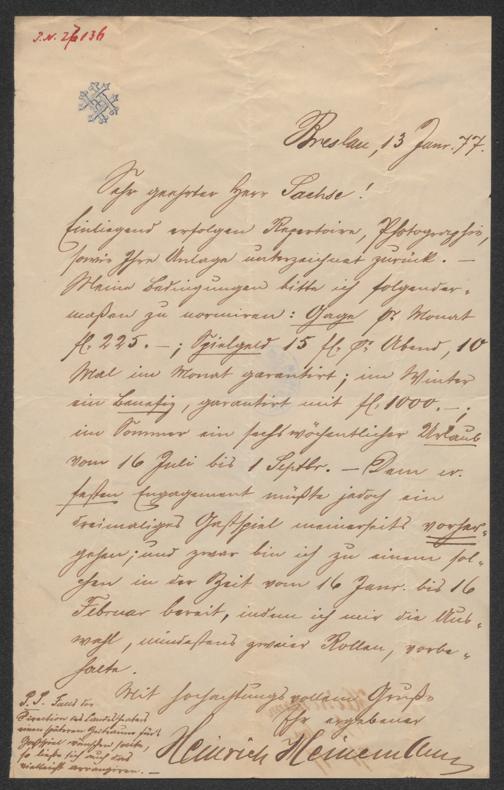 J.N. 27136
Breslau, 13 Janr. 77.
Sehr geehrter Herr Sachse!
Einliegend erfolgen Repertoire, Photographie,
sowie Ihre Anlage unterzeichnet zurück. —
Meine Bedingungen bitte ich folgender-
maßen zu normiren: Gage pr Monat
fl. 225. —; Spielgeld 15 fl. pr Abend, 10
Mal im Monat garantirt; im Winter
ein Benefiz, garantirt mit fl. 1000. —;
im Sommer ein sechswöchentlicher Urlaub
vom 16 Juli bis 1 Septbr. — Dem
festen Engagement müßte jedoch ein
dreimaliges Gastspiel meinerseits vorher-
gehen; und zwar bin ich zu einem sol-
chen in der Zeit vom 16 Janr. bis 16
Februar bereit, indem ich mir die Aus-
wahl, mindestens zweier Rollen, vorbe-
halte.
Mit hochachtungsvollem Gruß
Ihr ergebener
Heinrich Heinemann
P.S. Falls der
Direction des Landestheaters
einen späteren Zeitraum für's
Gastspiel wünschen sollte,
so ließe sich auch das
vielleicht arrangiren. —